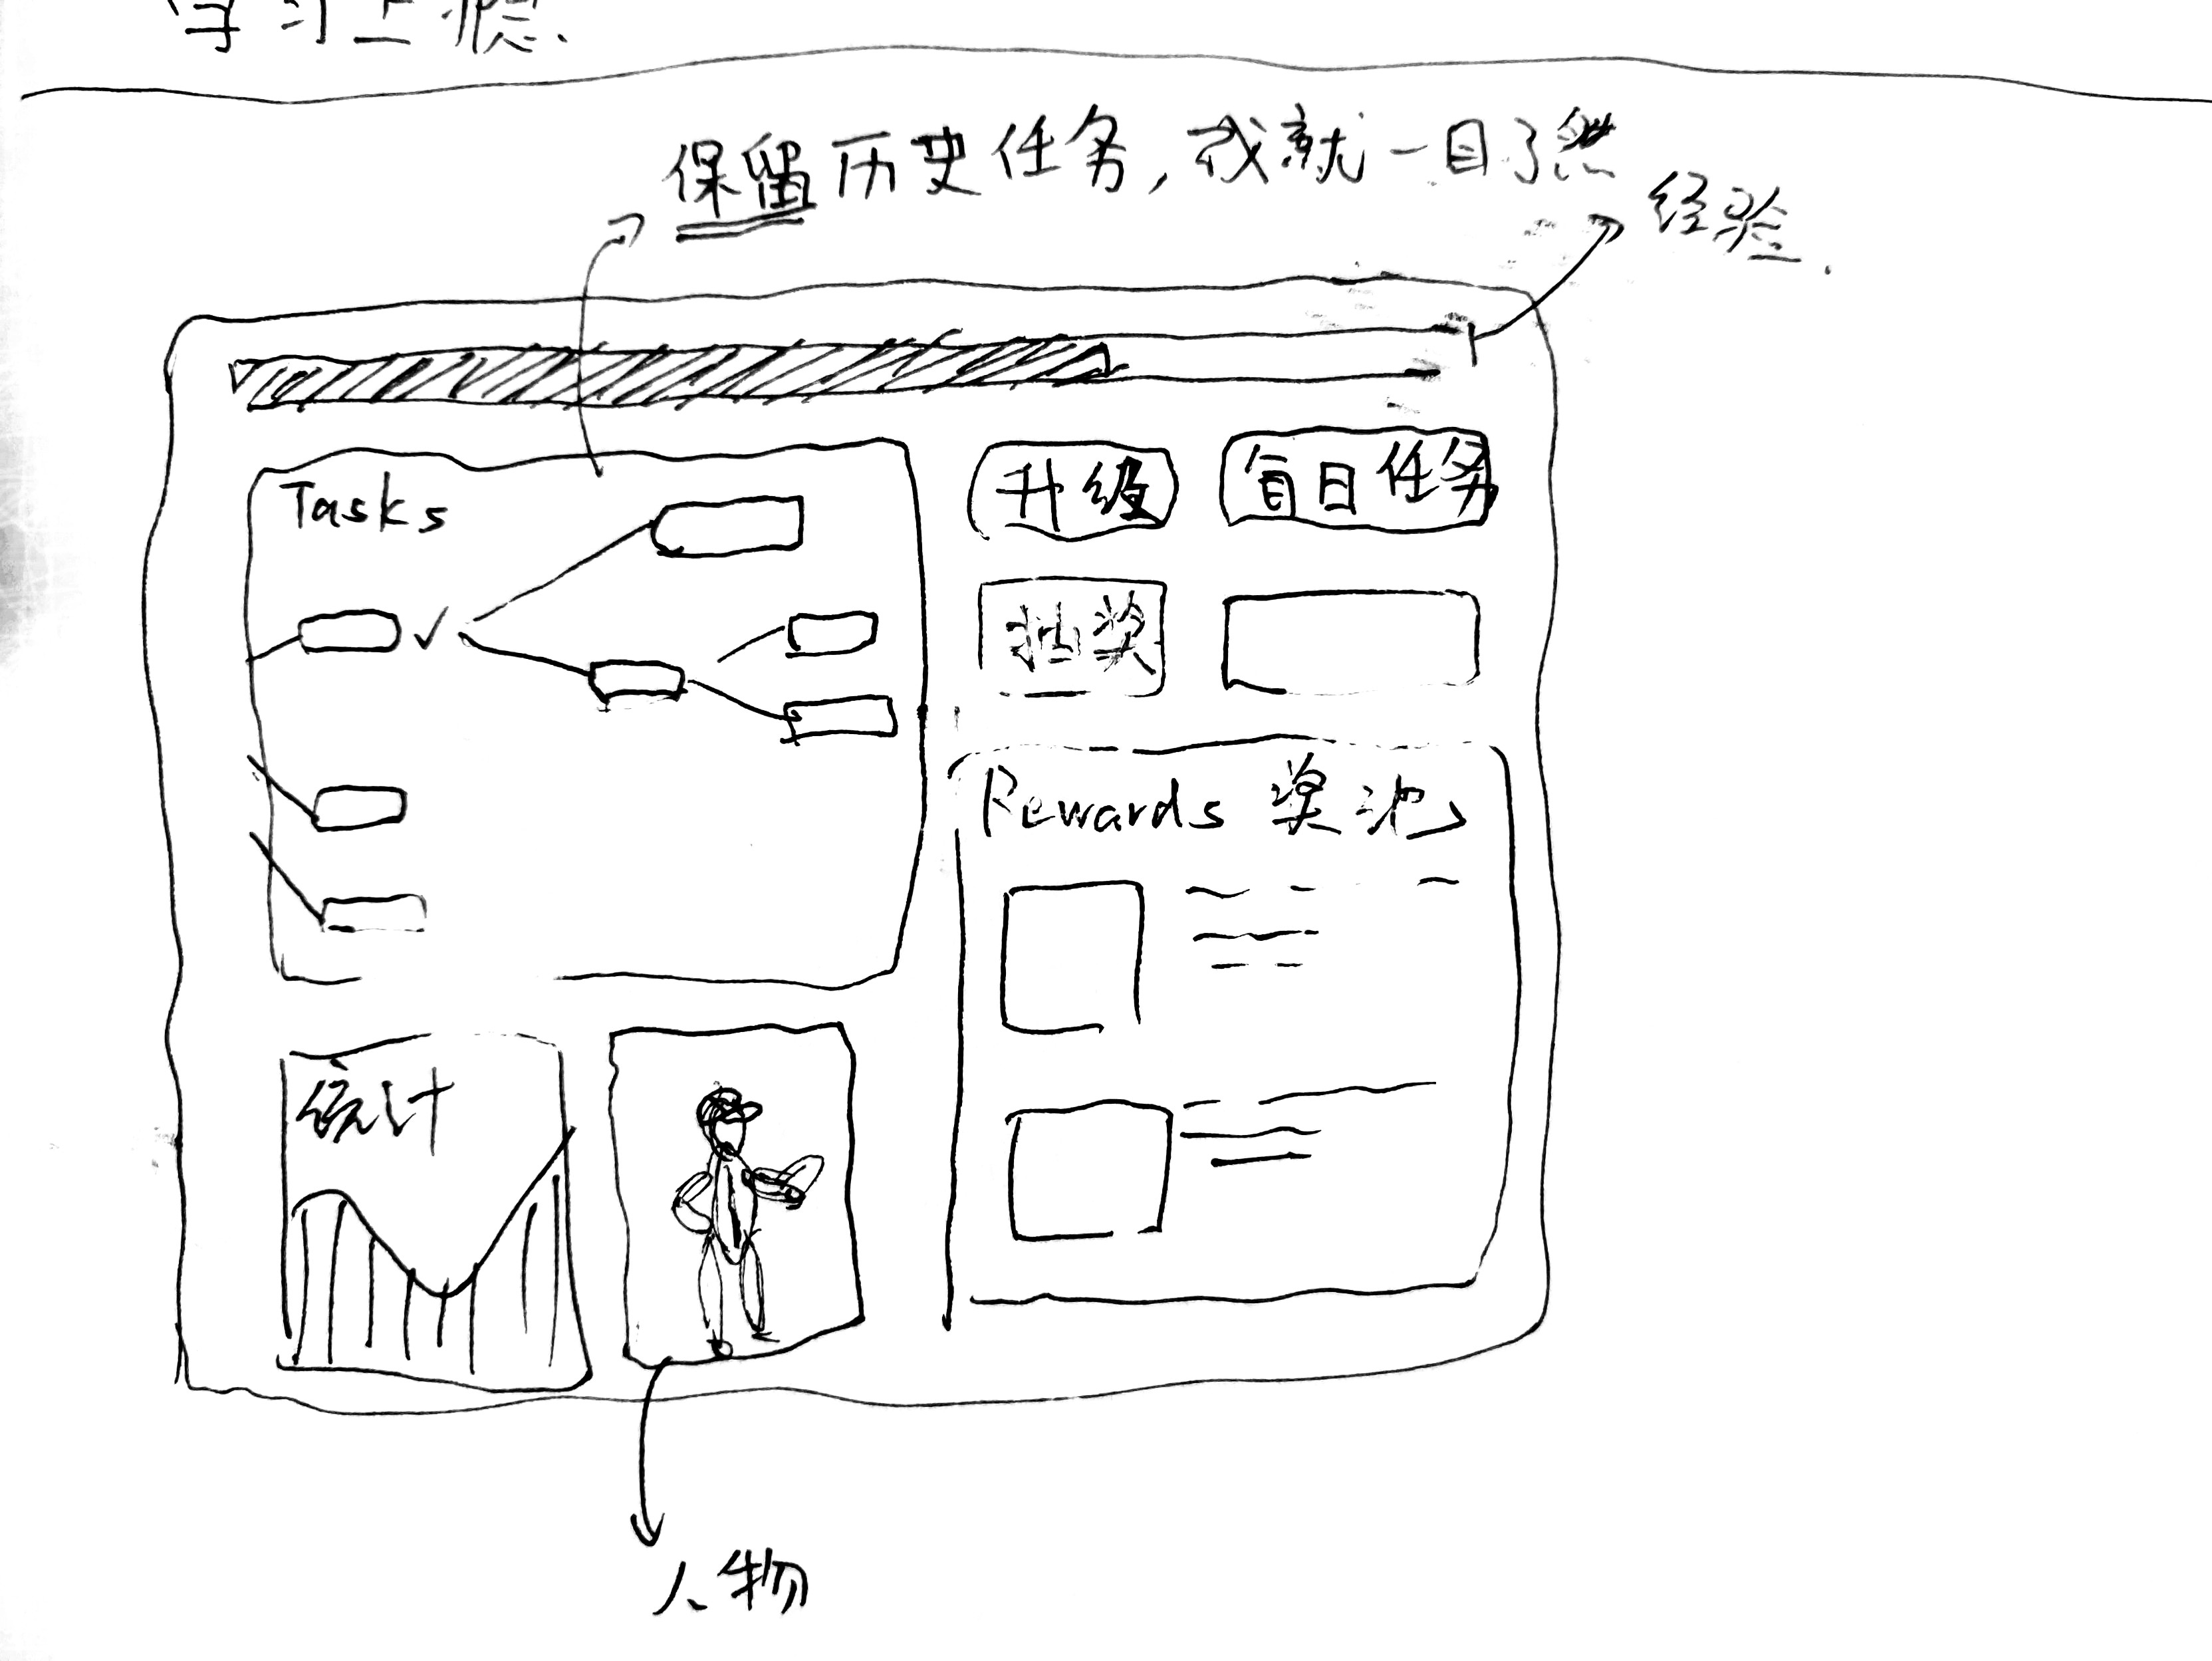 学习上瘾.
保留历史任务,成就一目了然
经验.
Tasks
升级
每日任务
抽奖
Rewards 奖池
统计
人物